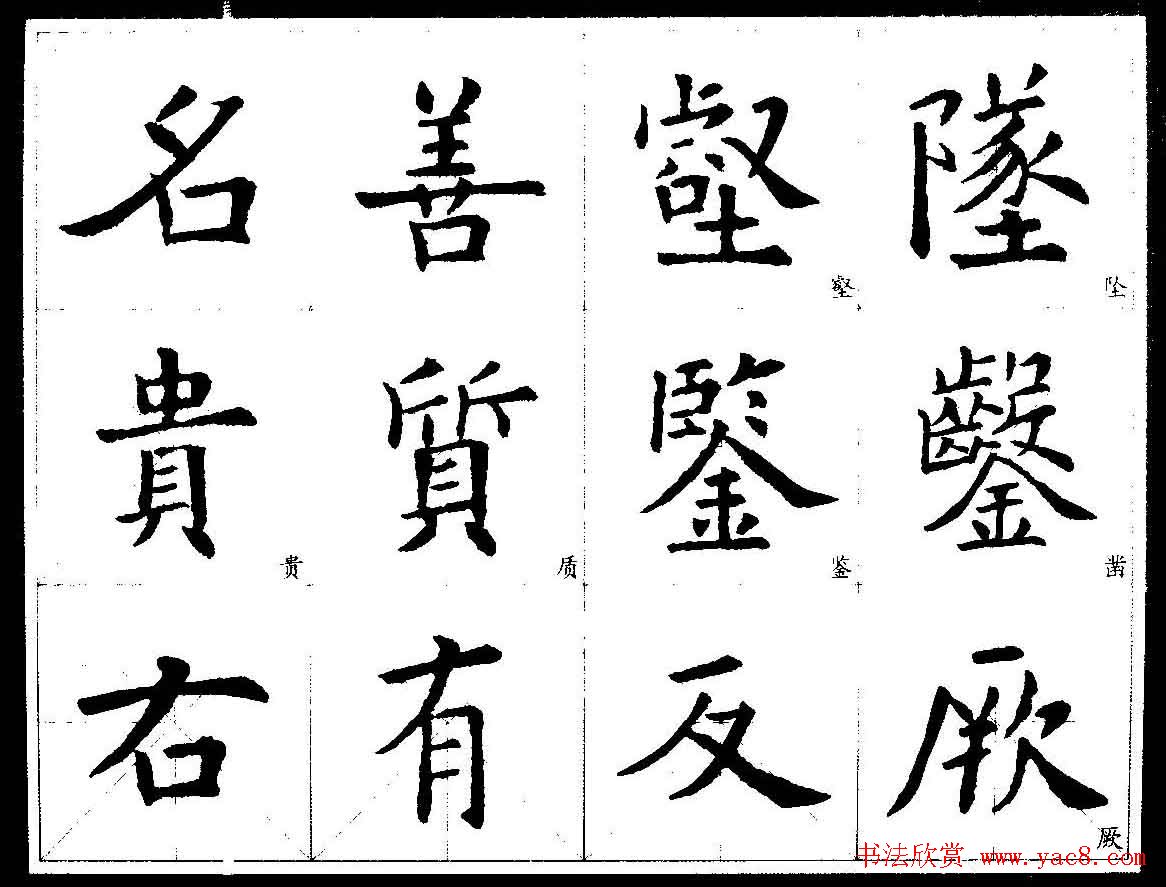 名 善 壑 墜
壑 坠
貴 質 鑒 鑿
贵 质 鉴 凿
右 有 反 厥
厥
书法欣赏 www.yac8.com